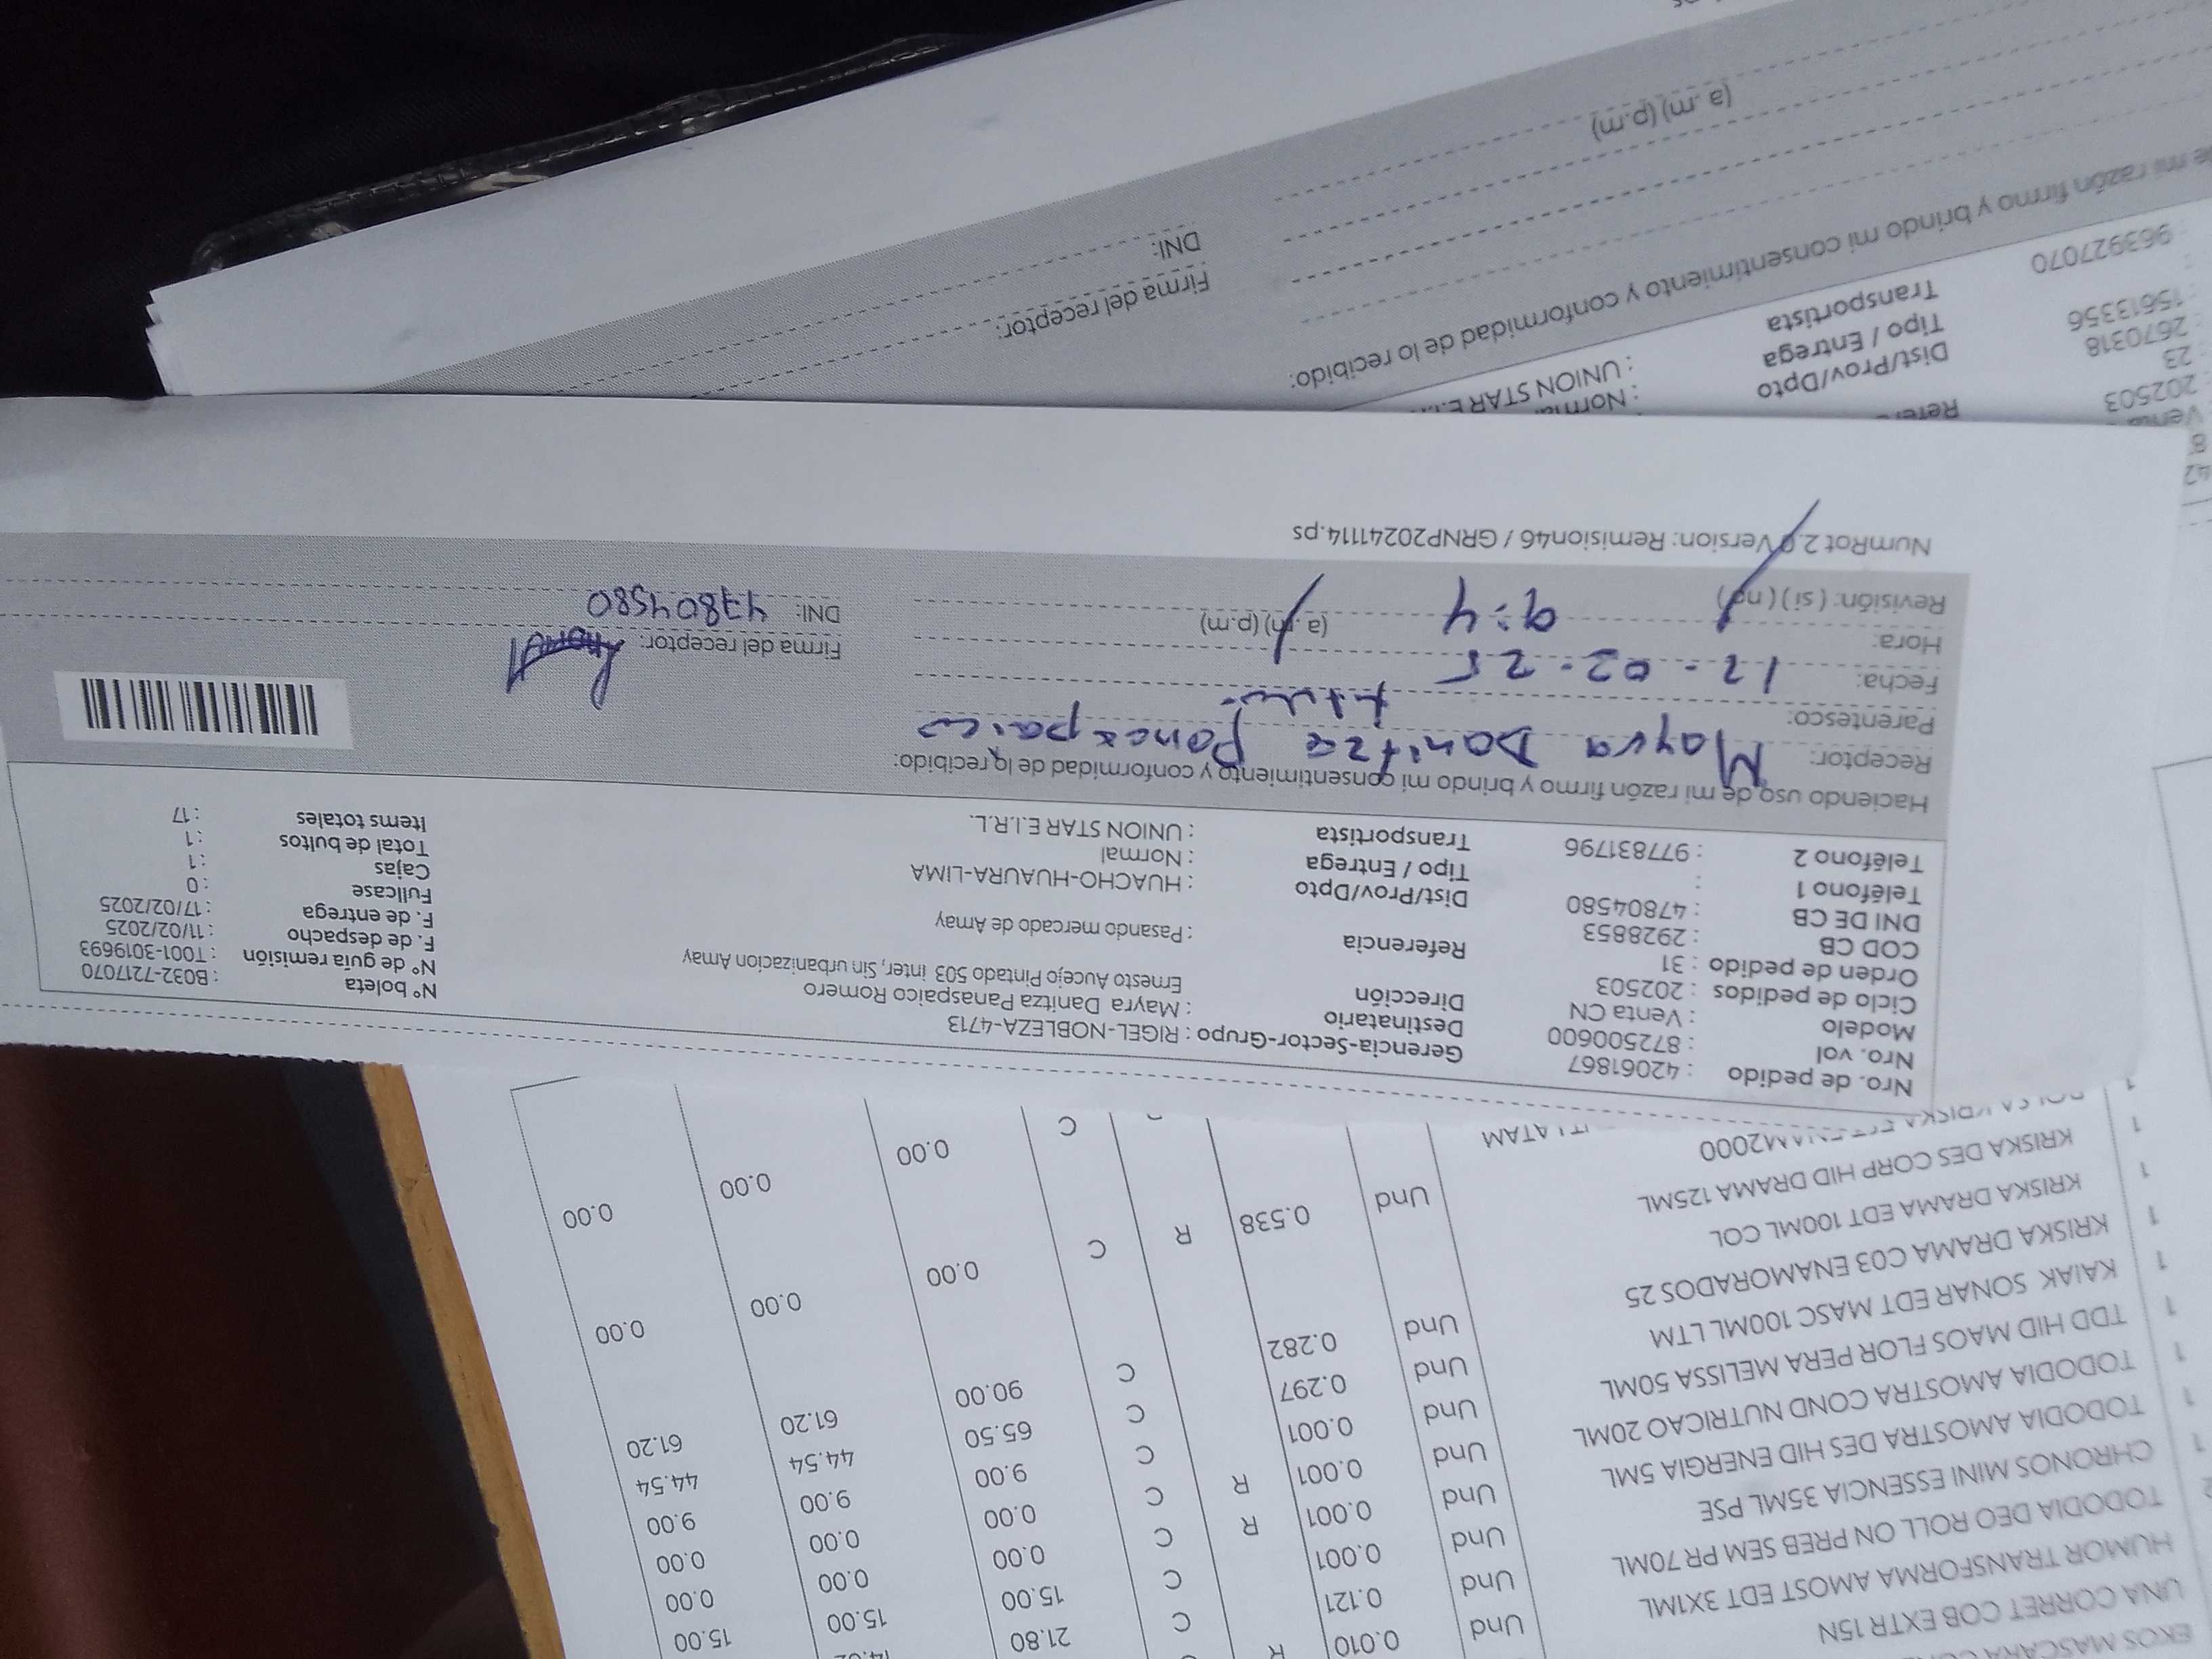 EKOS MASCARA
UNA CORRET COB EXTR 15N
HUMOR TRANSFORMA AMOST EDT 3X1ML Und 0.010 R C 21.80
TODODIA DEO ROLL ON PREB SEM PR 70ML Und 0.121 C 15.00 15.00 15.00
CHRONOS MINI ESSENCIA 35ML PSE Und 0.001 C 0.00 0.00 0.00
TODODIA AMOSTRA DES HID ENERGIA 5ML Und 0.001 R C 0.00 0.00 0.00
TODODIA AMOSTRA COND NUTRICAO 20ML Und 0.001 R C 9.00 9.00 9.00
TDD HID MAOS FLOR PERA MELISSA 50ML Und 0.001 C 65.50 44.54 44.54
KAIAK SONAR EDT MASC 100ML LTM Und 0.297 C 90.00 61.20 61.20
KRISKA DRAMA C03 ENAMORADOS 25 Und 0.282
KRISKA DRAMA EDT 100ML COL 0.00 0.00 0.00
KRISKA DES CORP HID DRAMA 125ML Und 0.538 R C
0.00 0.00 0.00
C
Nro. de pedido : 42061867
Nro. vol : 872500600
Modelo : Venta CN
Ciclo de pedidos : 202503
Orden de pedido : 31
COD CB : 2928853
DNI DE CB : 47804580
Teléfono 1 :
Teléfono 2 : 977831796
Gerencia-Sector-Grupo : RIGEL-NOBLEZA-4713
Destinatario : Mayra Danitza Panaspaico Romero
Dirección Ernesto Aucejo Pintado 503 inter, Sin urbanizacion Amay
Referencia : Pasando mercado de Amay
Dist/Prov/Dpto : HUACHO-HUAURA-LIMA
Tipo / Entrega : Normal
Transportista : UNION STAR E.I.R.L.
N° boleta : B032-7217070
N° de guía remisión : T001-3019693
F. de despacho : 11/02/2025
F. de entrega : 17/02/2025
Fullcase : 0
Cajas : 1
Total de bultos : 1
Items totales : 17
Haciendo uso de mi razón firmo y brindo mi consentimiento y conformidad de lo recibido:
Receptor: Mayra Danitza
Parentesco:
Fecha: 12-02-25
Hora: 9:4 (a.m) (p.m)
Revisión: (si) (no)
Firma del receptor:
DNI: 47804580
NumRot 2.0 Version: Remision46 / GRNP20241114.ps
202503
23
2670318
15613356
963927070
Dist/Prov/Dpto
Tipo / Entrega
Transportista : UNION STAR E.I.
e mi razón firmo y brindo mi consentimiento y conformidad de lo recibido:
(a.m) (p.m)
Firma del receptor:
DNI: